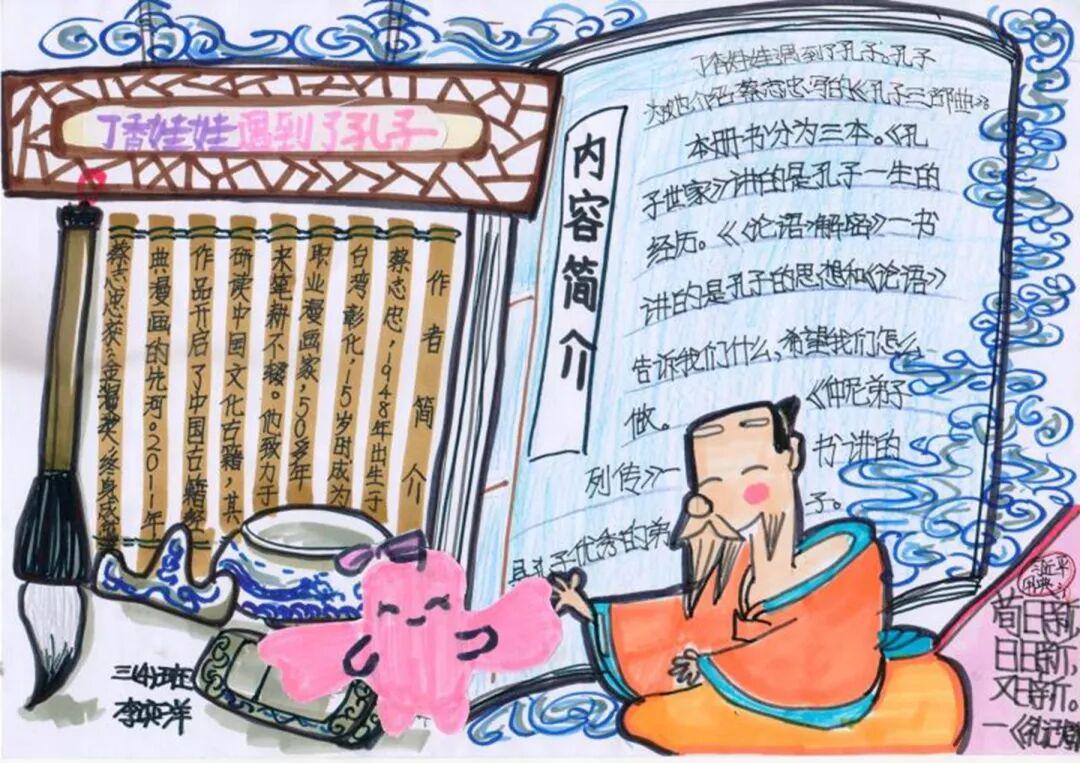 丁香娃娃遇到了孔子
作者简介
蔡志忠，1948年出生于
台湾彰化，15岁时成为
职业漫画家，50多年
来笔耕不辍。他致力于
研读中国文化古籍，其
作品开启了中国古籍经
典漫画的先河。2011年
蔡志忠获金漫奖，终身成就
内容简介
丁香娃娃遇到了孔子，孔子
为她介绍蔡志忠写的《孔子三部曲》。
本册书分为三本。《孔
子世家》讲的是孔子一生的
经历。《论语解密》一书
讲的是孔子的思想和《论语》
告诉我们什么，希望我们怎么
做。《仲尼弟子
列传》一书讲的
是孔子优秀的弟子。
三(4)班
习近平
苟日新，
日日新，
又日新。